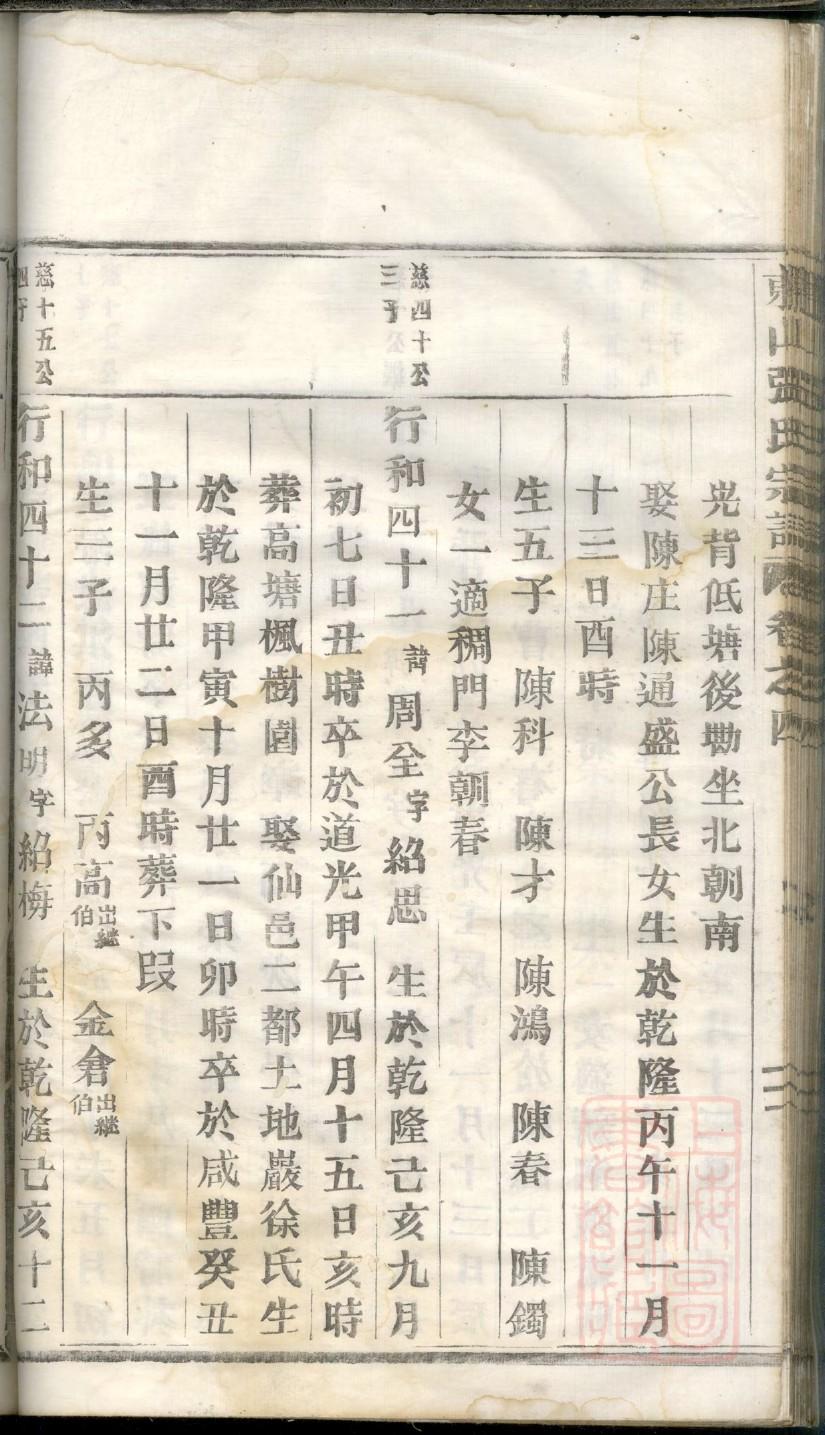 山張氏宗譜 卷之四
背低塘後塝坐北朝南
娶陳庄陳通盛公長女生於乾隆丙午十一月
十三日酉時
生五子 陳科 陳才 陳鴻 陳春 陳鐲
女一適稠門李朝春
慈四十公
三子
行和四十一諱周全字紹思 生於乾隆己亥九月
初七日丑時卒於道光甲午四月十五日亥時
葬高塘楓樹園 娶仙邑二都土地巖徐氏生
於乾隆甲寅十月廿一日卯時卒於咸豐癸丑
十一月廿二日酉時葬下叚
生三子 丙多 丙高出繼伯 金倉出繼伯
慈十五公
四子
行和四十二諱法明字紹梅 生於乾隆己亥十二